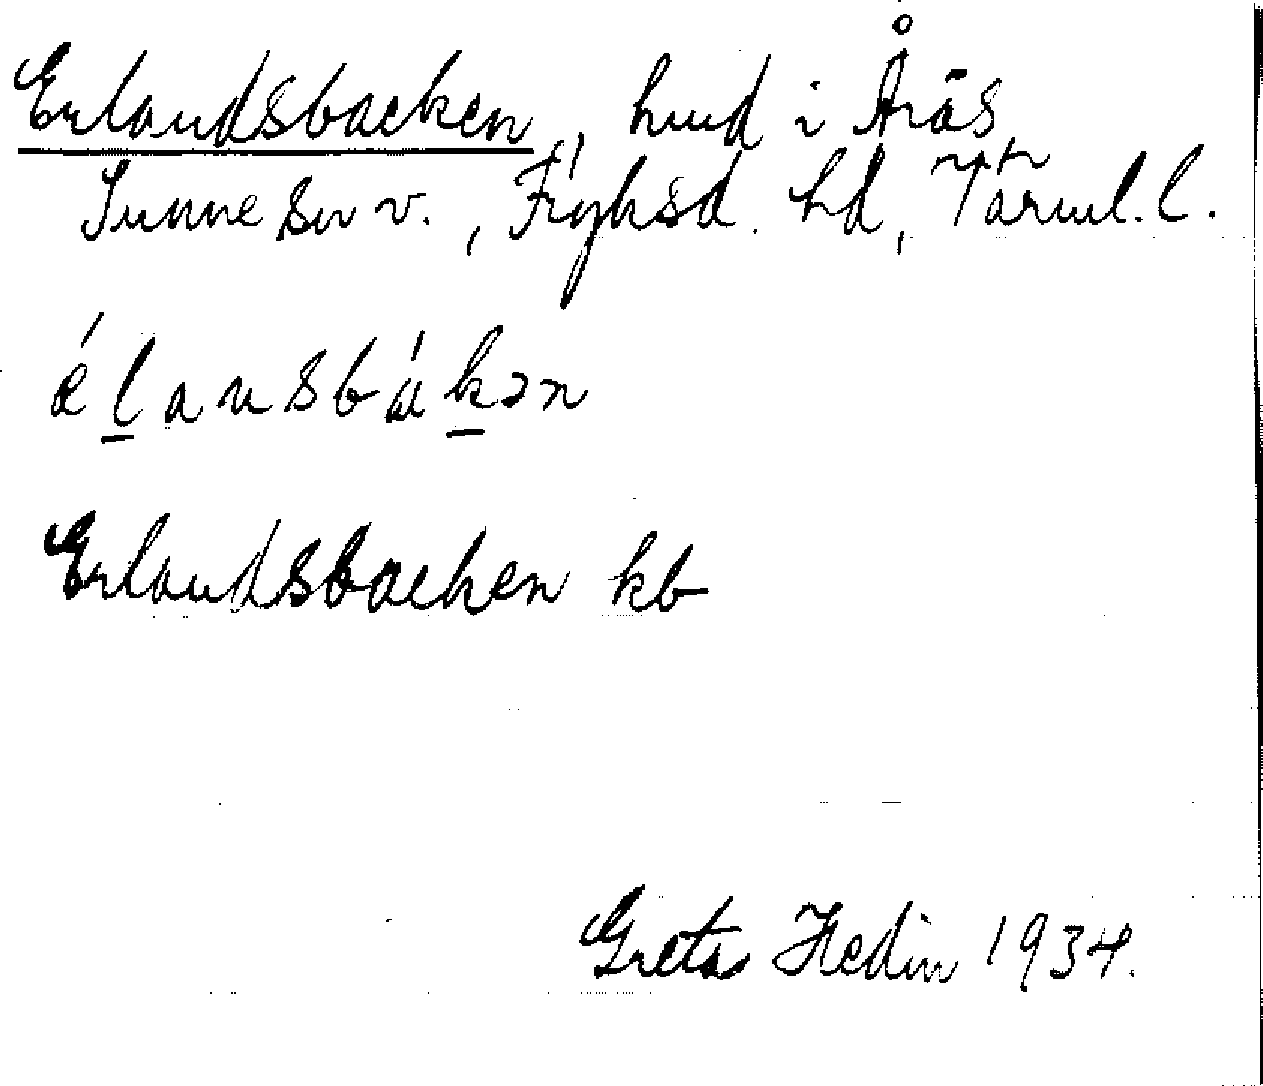 Erlandsbacken, hmd i Åräs
Sunne sn v., Fryksd. hd, Värml. l.
élansbákən
Erlandsbacken kb
Greta Hedin 1934.